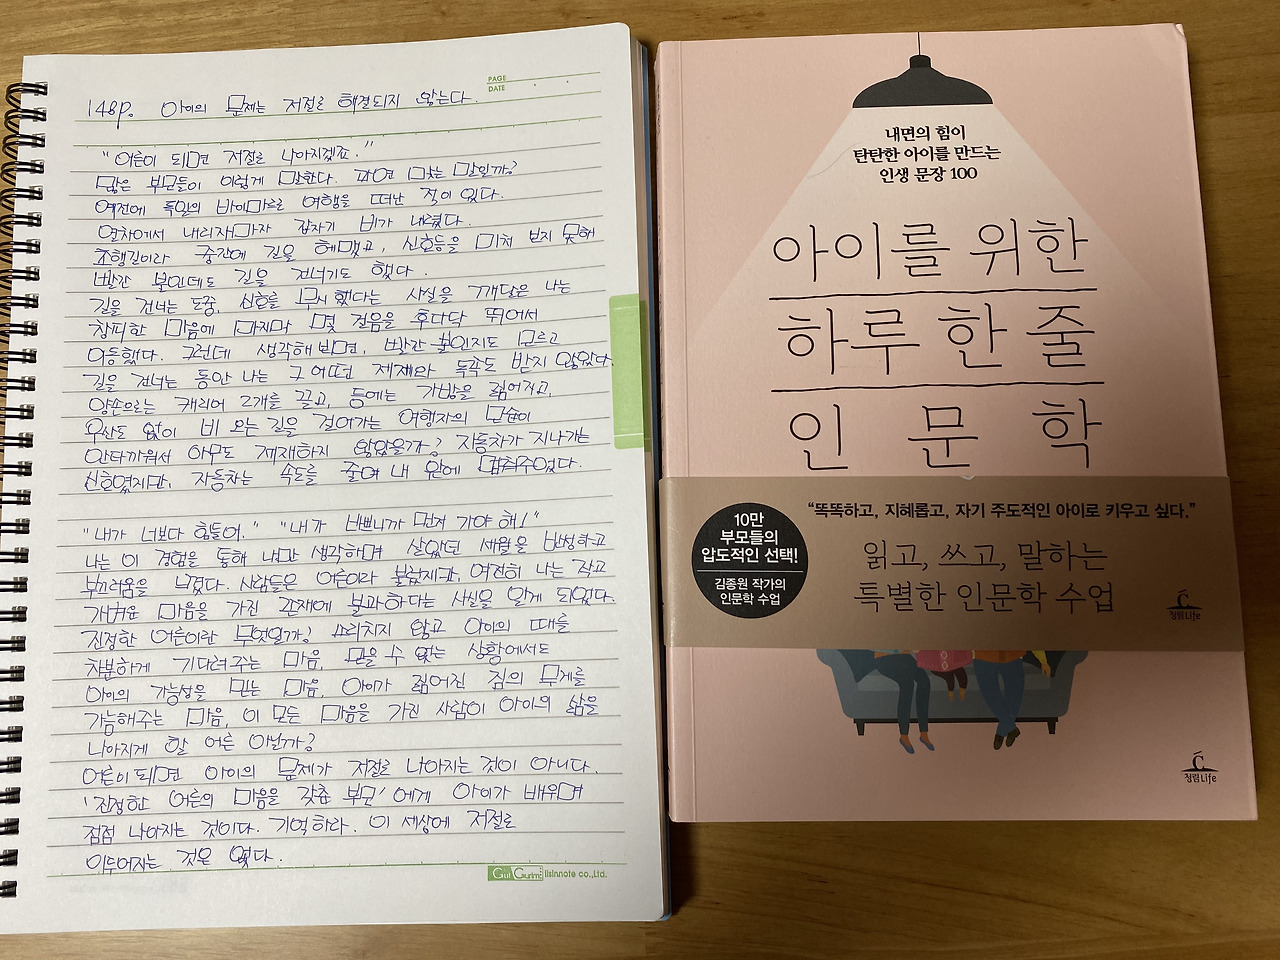 PAGE
DATE
148p. 아이의 문제는 저절로 해결되지 않는다.
"어른이 되면 저절로 나아지겠죠."
많은 부모들이 이렇게 말한다. 과연 맞는 말일까?
예전에 독일의 바이마르로 여행을 떠난 적이 있다.
열차에서 내리자마자 갑자기 비가 내렸다.
초행길이라 중간에 길을 헤맸고, 신호등을 미처 보지 못해
빨간 불인데도 길을 건너기도 했다.
길을 건너는 도중, 신호를 무시했다는 사실을 깨달은 나는
창피한 마음에 마지막 몇 걸음을 후다닥 뛰어서
이동했다. 그런데 생각해보면, 빨간 불인지도 모르고
길을 건너는 동안 나는 그 어떤 제재와 독촉도 받지 않았다.
양손으로는 캐리어 2개를 끌고, 등에는 가방을 짊어지고,
우산도 없이 비 오는 길을 걸어가는 여행자의 모습이
안타까워서 아무도 제재하지 않았을까? 자동차가 지나가는
신호였지만, 자동차는 속도를 줄여 내 앞에 멈춰주었다.
"내가 너보다 힘들어." "내가 바쁘니까 먼저 가야 해!"
나는 이 경험을 통해 나만 생각하며 살았던 세월을 반성하고
부끄러움을 느꼈다. 사람들은 어른이라 불렀지만, 여전히 나는 작고
가벼운 마음을 가진 존재에 불과하다는 사실을 알게 되었다.
진정한 어른이란 무엇일까? 소리치지 않고 아이의 때를
차분하게 기다려주는 마음, 믿을 수 없는 상황에서도
아이의 가능성을 믿는 마음, 아이가 짊어진 짐의 무게를
가늠해주는 마음, 이 모든 마음을 가진 사람이 아이의 삶을
나아지게 할 어른 아닐까?
어른이 되면 아이의 문제가 저절로 나아지는 것이 아니다.
'진정한 어른의 마음을 갖춘 부모'에게 아이가 배우며
점점 나아지는 것이다. 기억하라. 이 세상에 저절로
이루어지는 것은 없다.
Gul Gurim lisinnote co.,Ltd.
내면의 힘이
탄탄한 아이를 만드는
인생 문장 100
아이를 위한
하루 한 줄
인문학
10만
부모들의
압도적인 선택!
김종원 작가의
인문학 수업
"똑똑하고, 지혜롭고, 자기 주도적인 아이로 키우고 싶다."
읽고, 쓰고, 말하는
특별한 인문학 수업
청림Life
청림Life